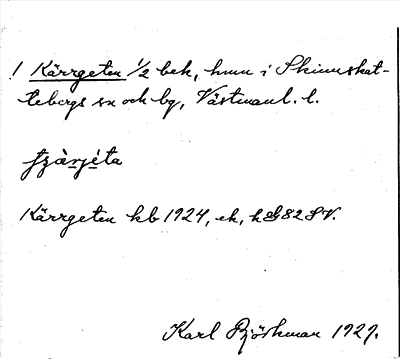 ! Kärrgeten 1/2 bek, hmn i Skinnskat-
tebergs sn och bg, Västmanl. l.
Kärrgeten kb 1924, ek, 82 SV.
Karl Björkman 1927.